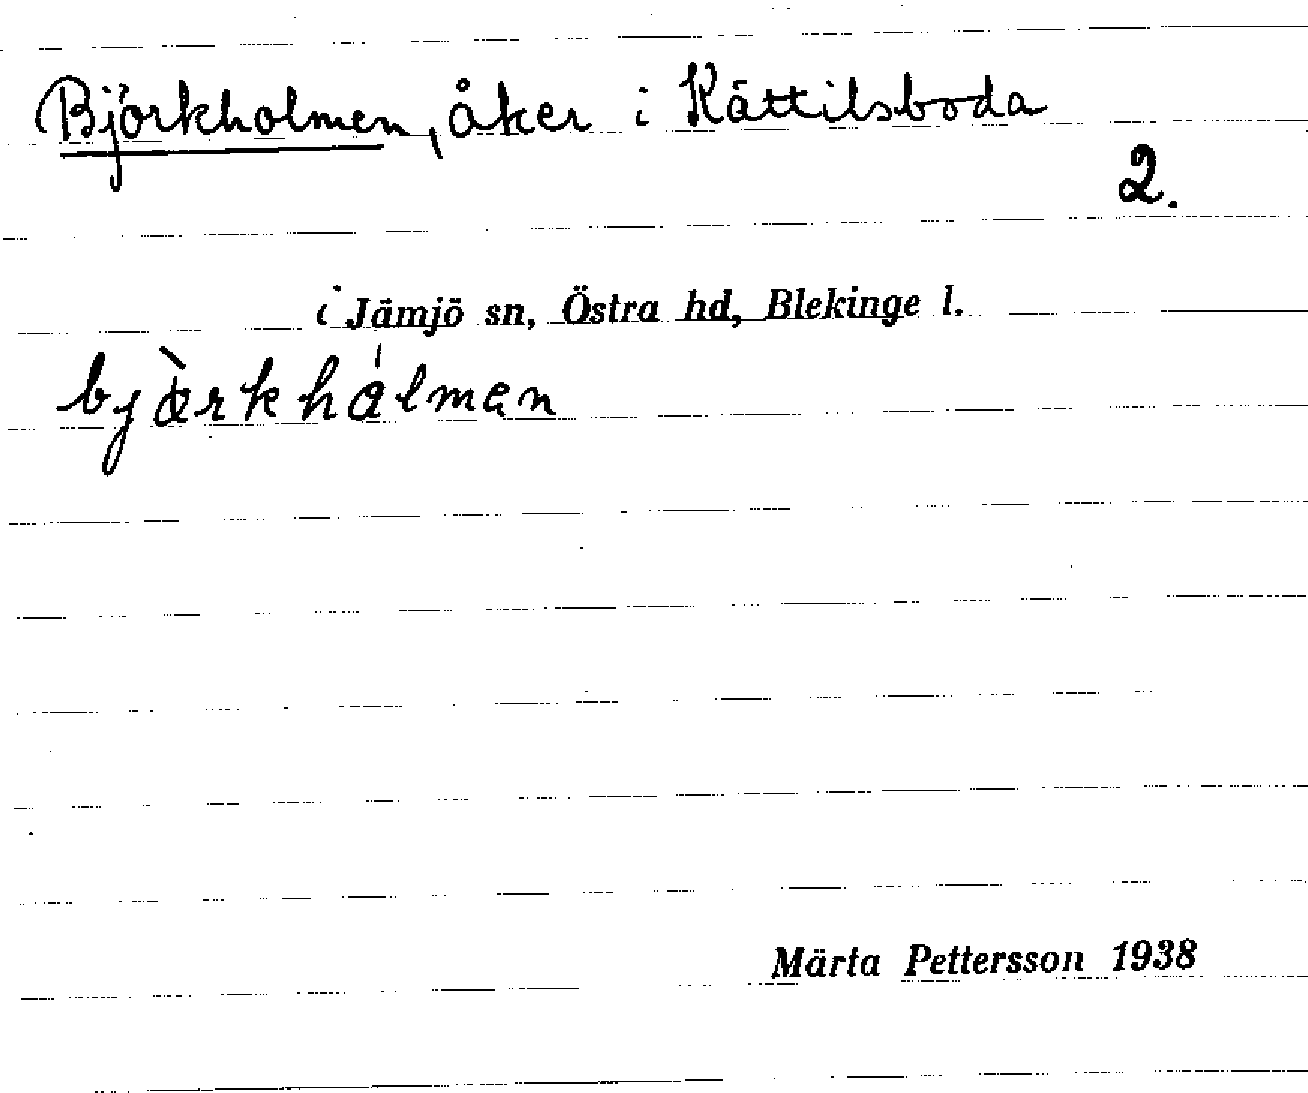 Björkholmen, åker i Kättilsboda
2.
i Jämjö sn, Östra hd, Blekinge l.
bjàrkhálmen
Märta Pettersson 1938